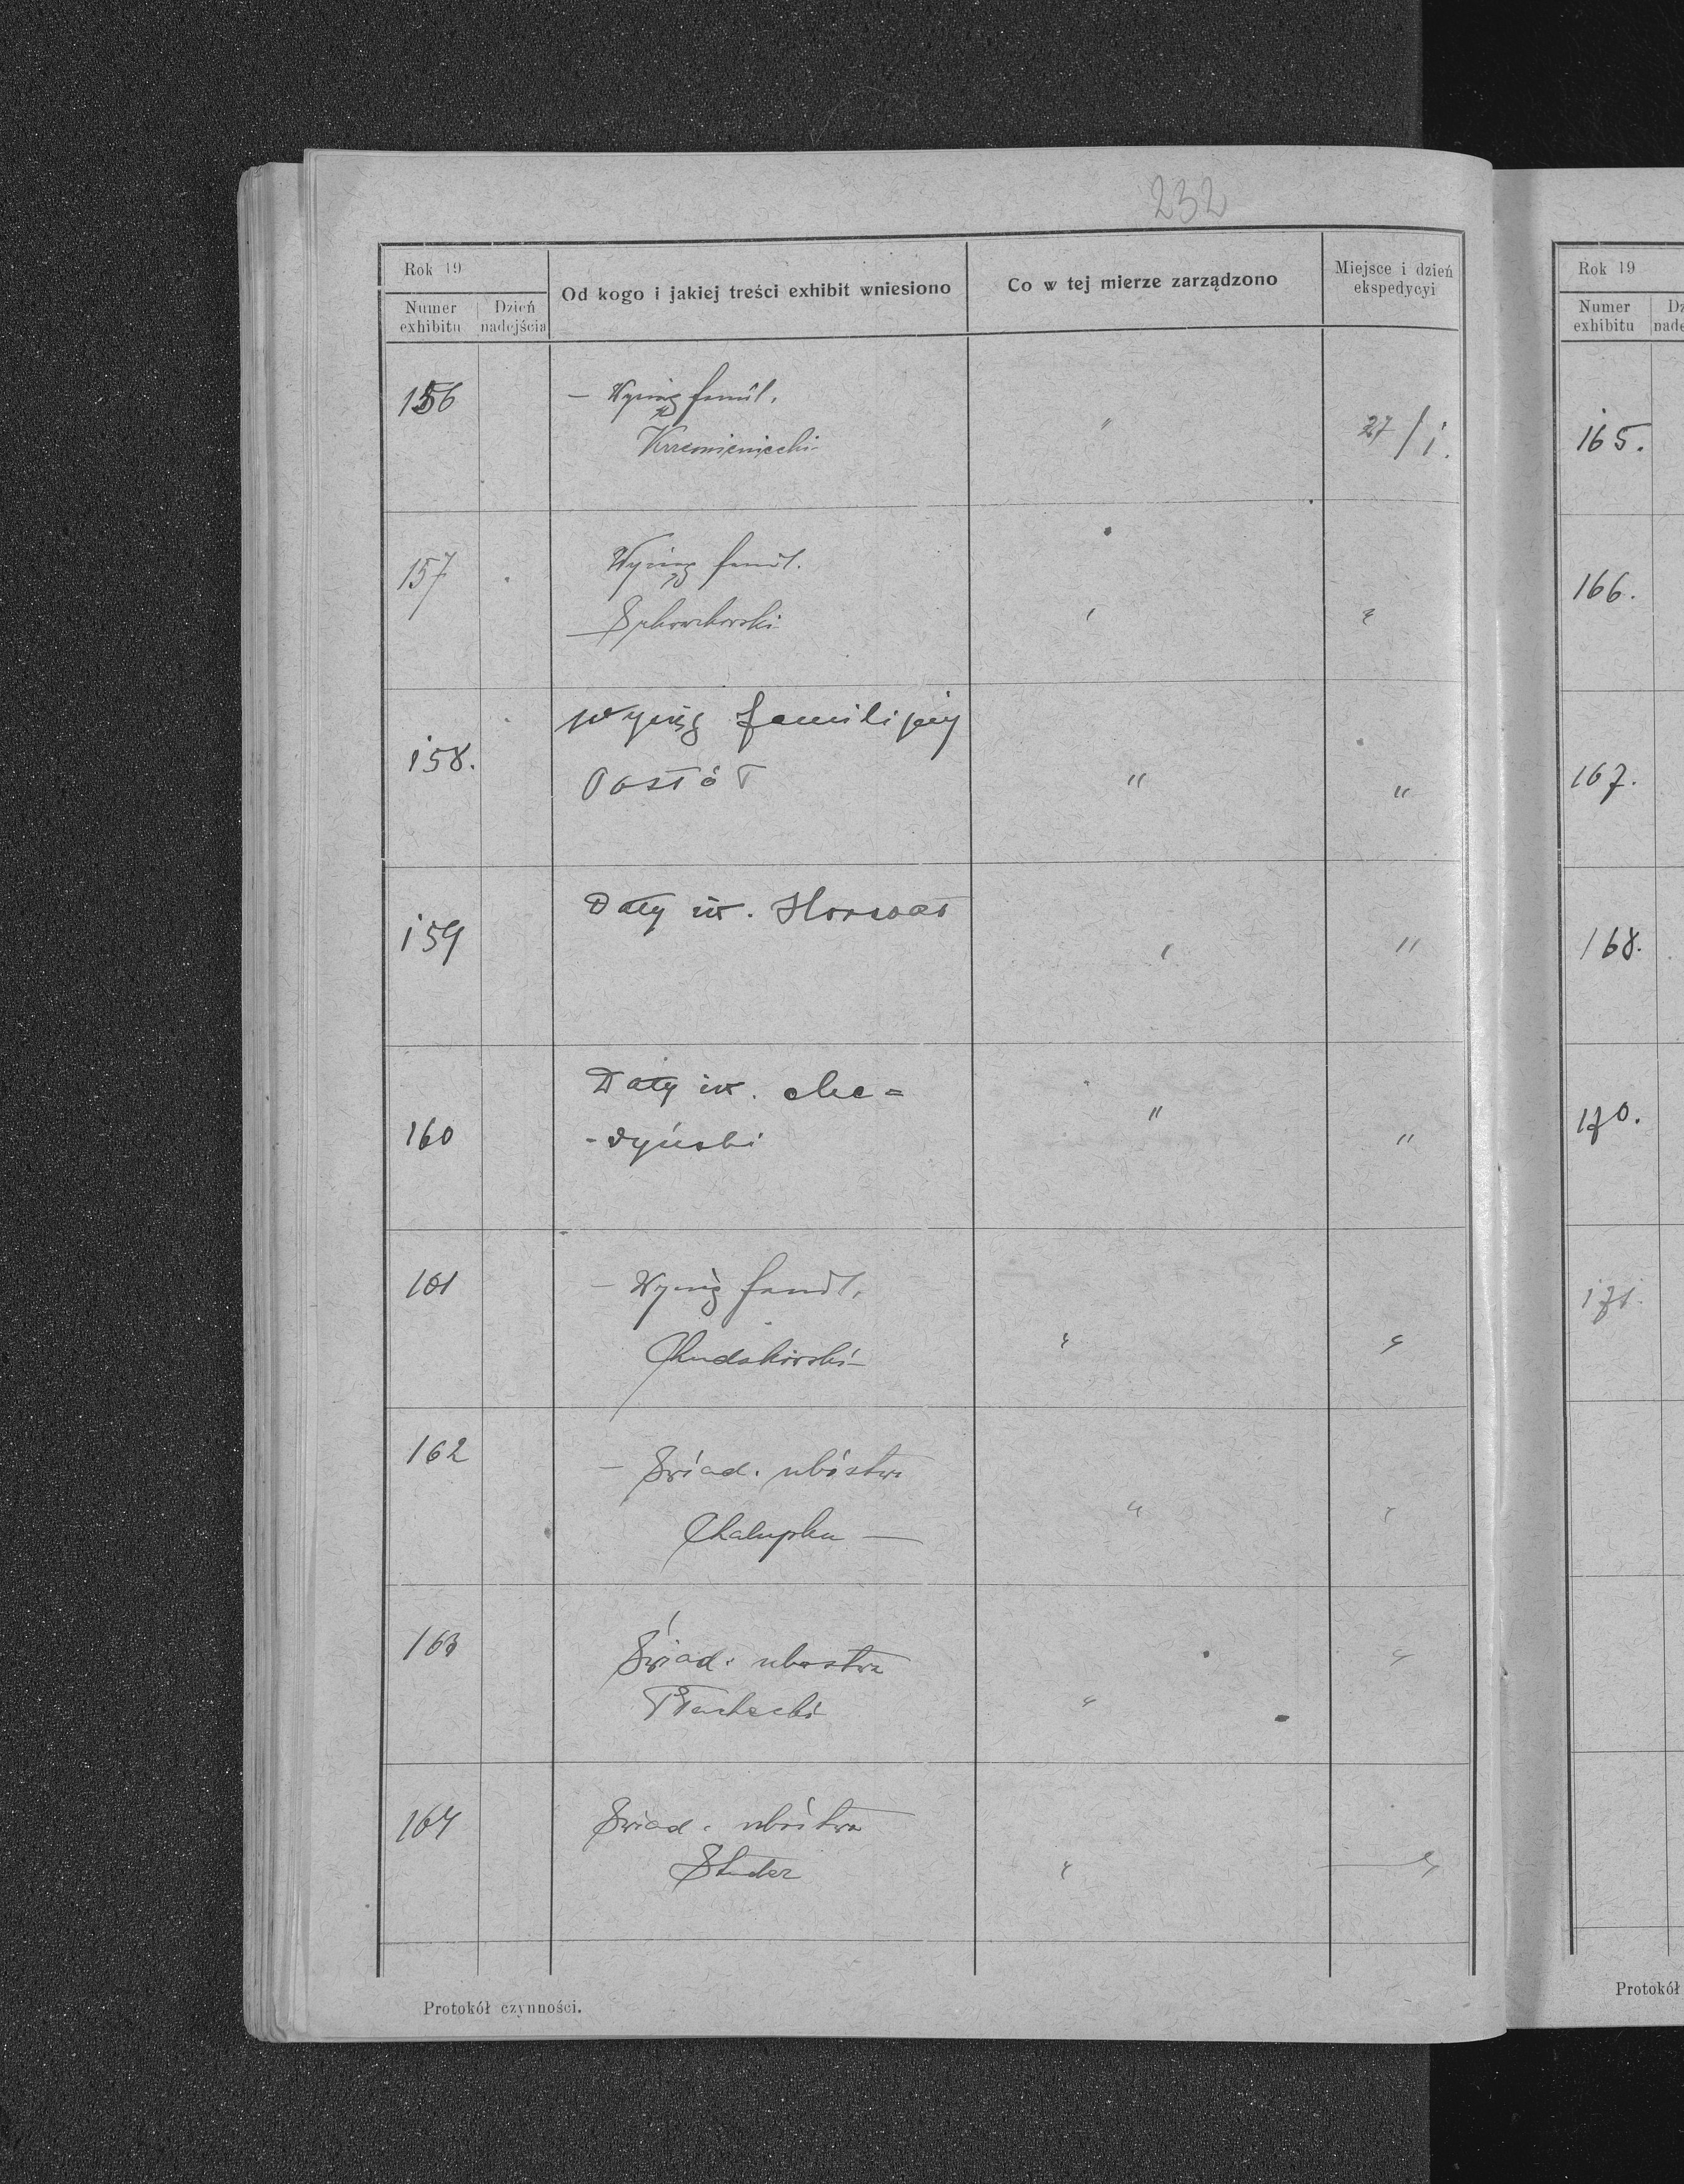 232
Rok 19
Numer exhibitu
Dzień nadejścia
Od kogo i jakiej treści exhibit wniesiono
Co w tej mierze zarządzono
Miejsce i dzień ekspedycyi
156
— Wyciąg famil.
Krzemieniecki
"
27/I.
157
Wyciąg famil.
158.
Wyciąg familijny
Postół
"
"
159
Daty św. Horwat
"
160
Daty św. Me=
-dyński
"
"
161
— Wyciąg famil.
Chudakowski
"
"
162
— Świad. ubóstwa
Chalupka —
"
"
163
Świad. ubostwa
"
"
164
Świad. ubóstwa
Studer
"
"
Protokół czynności.
Rok 19
Numer exhibitu
165.
166.
167.
168.
170.
171.
Protokół